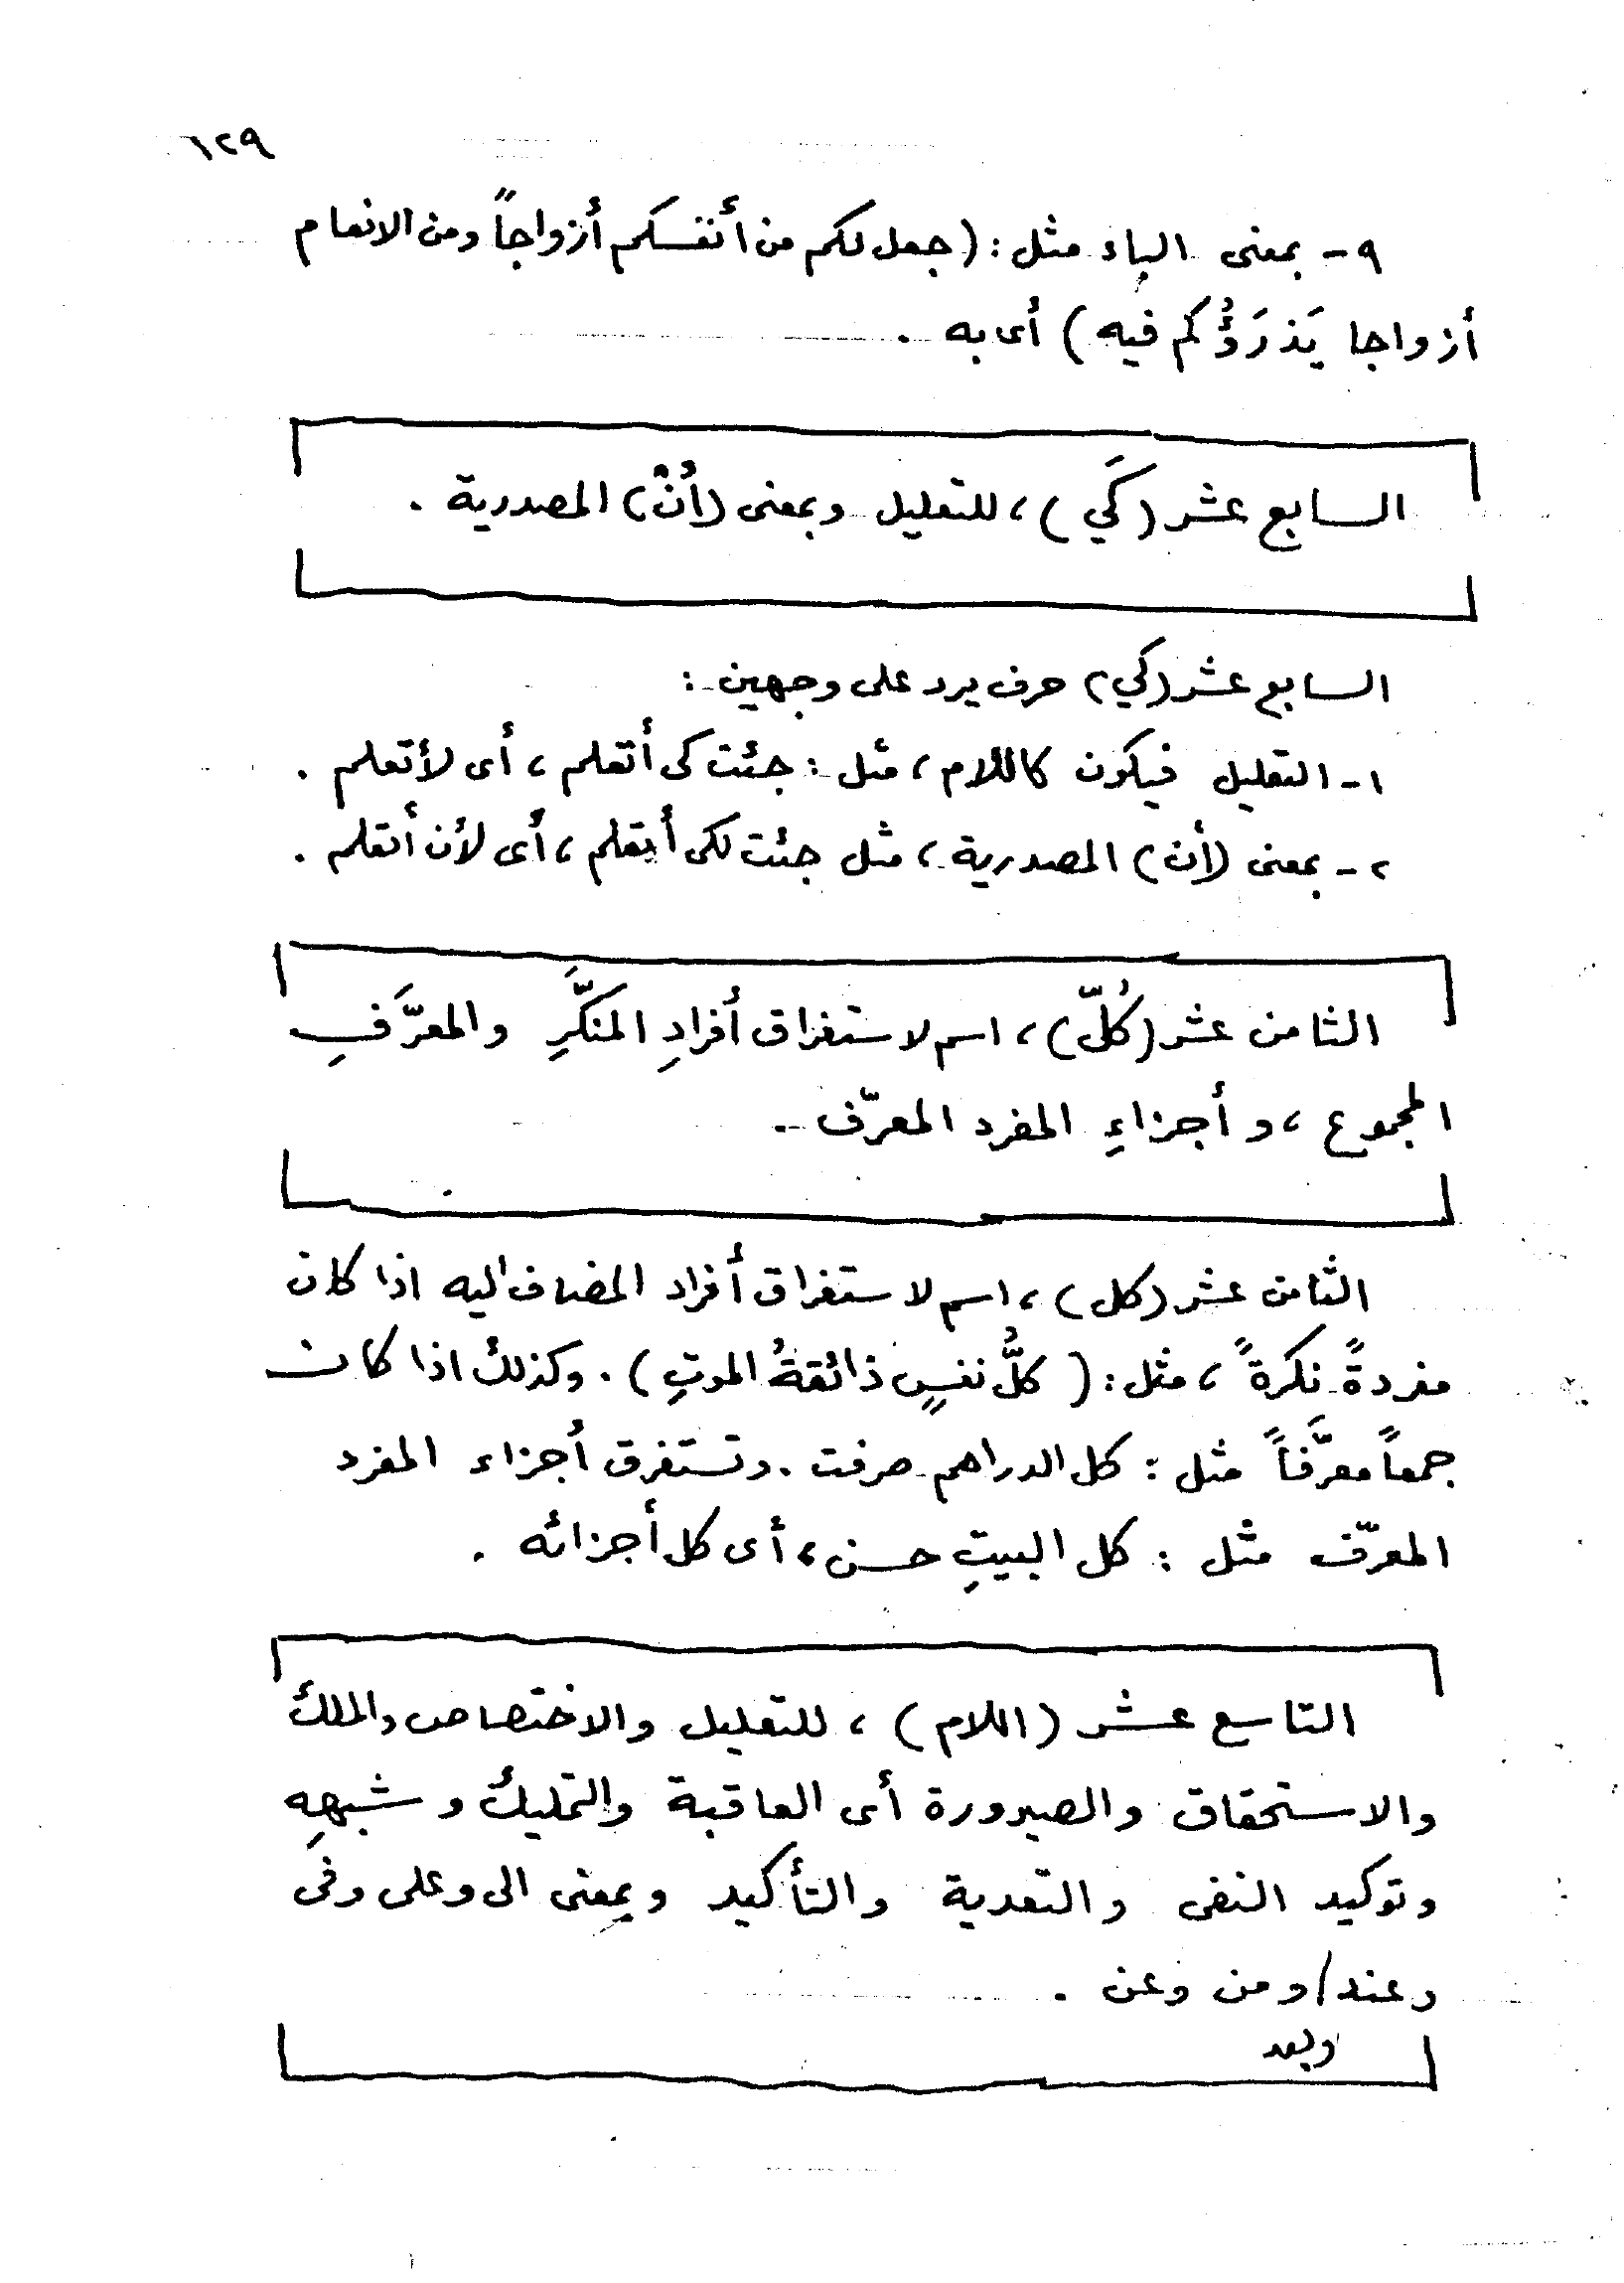 ١٢٩
٩ - بمعنى الباء مثل : (جعل لكم من أنفسكم أزواجاً ومن الانعام
أزواجا يَذرَؤُكم فيه) أى به .
السابع عشر (كَي) ، للتعليل وبمعنى (أنْ) المصدرية .
السابع عشر (كي) حرف يرد على وجهين :
١ - التعليل فيكون كاللام ، مثل : جئت كى أتعلم ، أى لأتعلم .
٢ - بمعنى (أن) المصدرية ، مثل جئت لكى أتعلم ، أى لأن أتعلم .
الثامن عشر (كُلّ) ، اسم لاستغراق أفرادِ المنكَّرِ والمعرَّفِ
المجموع ، و أجزاءِ المفرد المعرّف .
الثامن عشر (كل) ، اسم لاستغراق أفراد المضاف اليه اذا كان
مفردةً نكرةً ، مثل : (كلُّ نفسٍ ذائقةُ الموتِ) . وكذلك اذا كان
جمعاً معرَّفاً مثل : كل الدراهم صرفت . وتستغرق أجزاء المفرد
المعرّف مثل : كل البيتِ حسن ، أى كل أجزائه .
التاسع عشر (اللام) ، للتعليل والاختصاص والملك
والاستحقاق والصيرورة أى العاقبة والتمليك وشبهِه
وتوكيد النفى والتعدية والتأكيد وبمعنى الى وعلى وفى
وعند/ ومن وعن .
وبعد